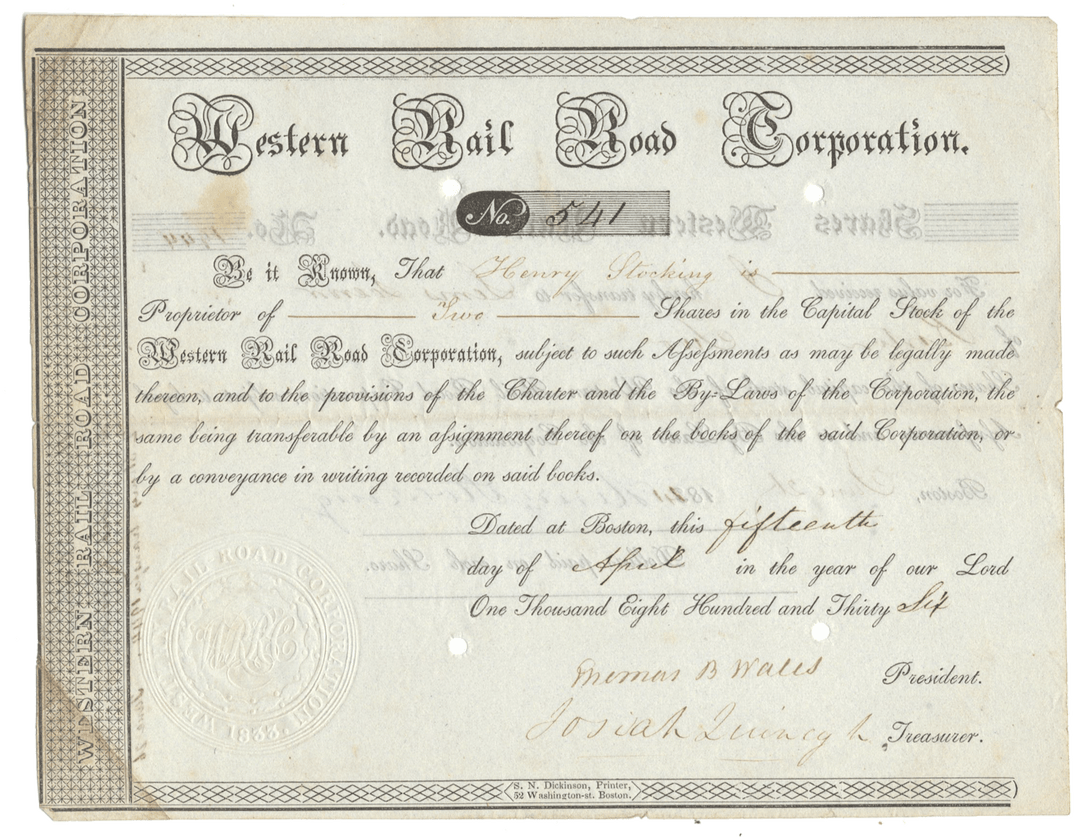 WESTERN RAIL ROAD CORPORATION
Western Rail Road Corporation.
No. 541
Be it Known, That Henry Stocking is
Proprietor of Two Shares in the Capital Stock of the
Western Rail Road Corporation, subject to such Assessments as may be legally made
thereon, and to the provisions of the Charter and the By-Laws of the Corporation, the
same being transferable by an assignment thereof on the books of the said Corporation, or
by a conveyance in writing recorded on said books.
Dated at Boston, this fifteenth
day of April in the year of our Lord
One Thousand Eight Hundred and Thirty Six
WESTERN RAIL ROAD CORPORATION
WRRC
1833.
Thomas B Wales President.
Josiah Quincy Jr Treasurer.
S. N. Dickinson, Printer,
52 Washington-st. Boston.